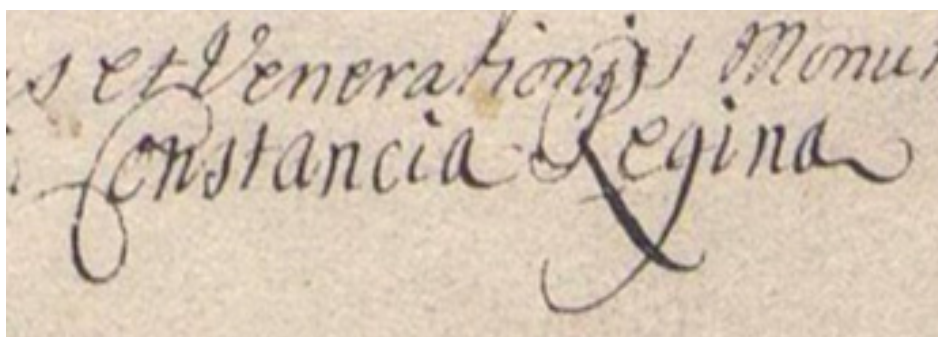 s et Venerationis Monu
Constancia Regina